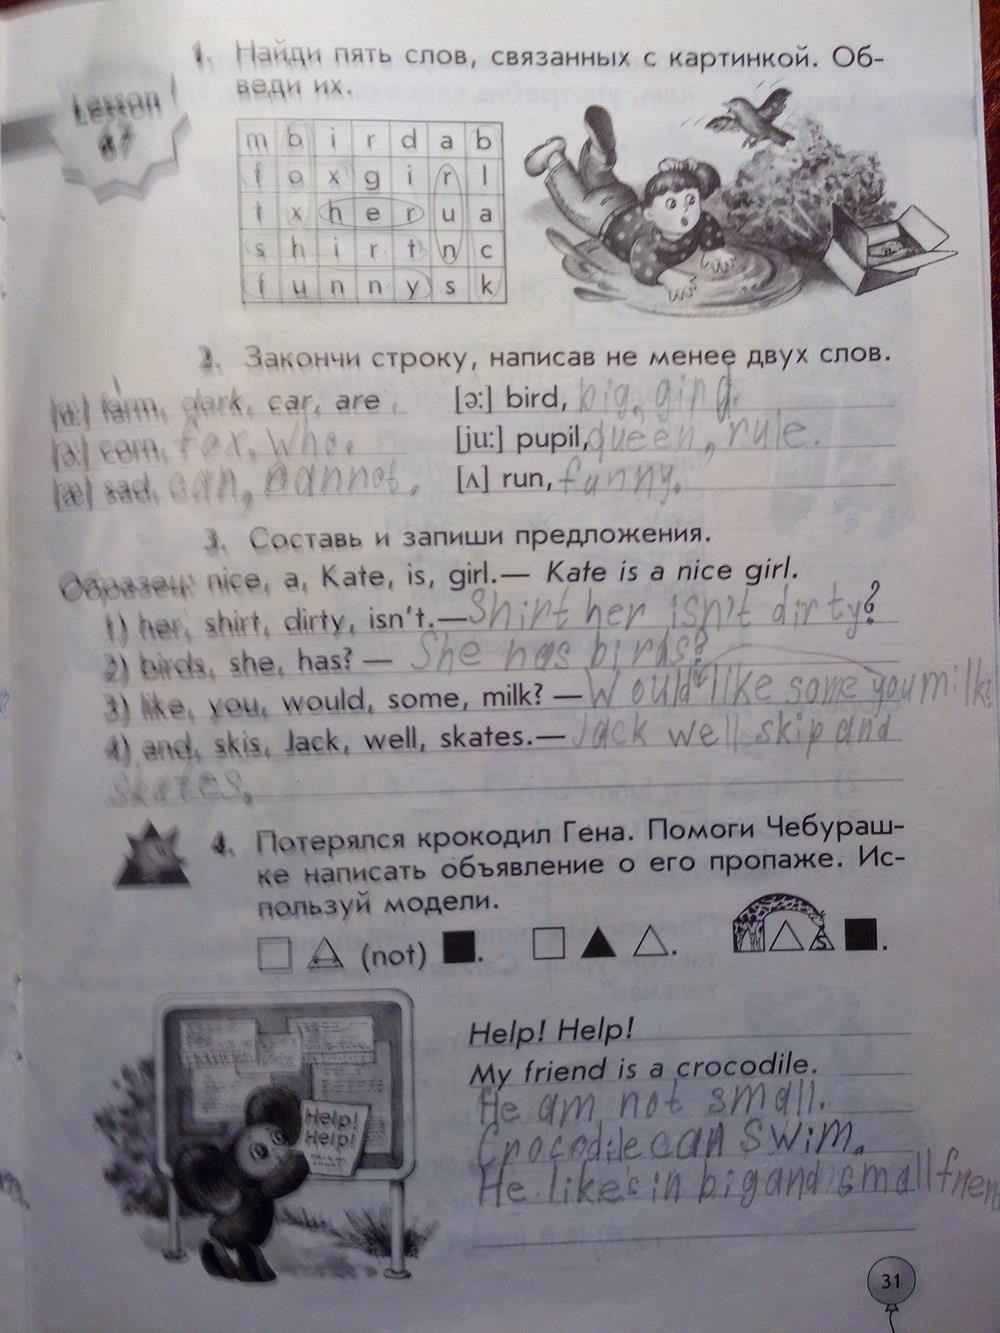 1. Найди пять слов, связанных с картинкой. Об-
веди их.
Lesson
67
m b i r d a b
f o x g i r l
t x h e r u a
s h i r t n c
f u n n y s k
2. Закончи строку, написав не менее двух слов.
[ɑ:] farm, dark, car, are
[ə:] bird, big, ging.
[ɔ:] corn, for, who.
[ju:] pupil, queen, rule.
[æ] sad, can, cannot.
[ʌ] run, funny.
3. Составь и запиши предложения.
Образец: nice, a, Kate, is, girl.— Kate is a nice girl.
1) her, shirt, dirty, isn't.— Shirt her isn't dirty?
2) birds, she, has? — She has birds?
3) like, you, would, some, milk? — Would like some you milk
4) and, skis, Jack, well, skates.— Jack well skip and
skates.
4. Потерялся крокодил Гена. Помоги Чебураш-
ке написать объявление о его пропаже. Ис-
пользуй модели.
(not)
Help! Help!
My friend is a crocodile.
He am not small.
Crocodile can swim.
He like's in big and small frien
Help!
Help!
31